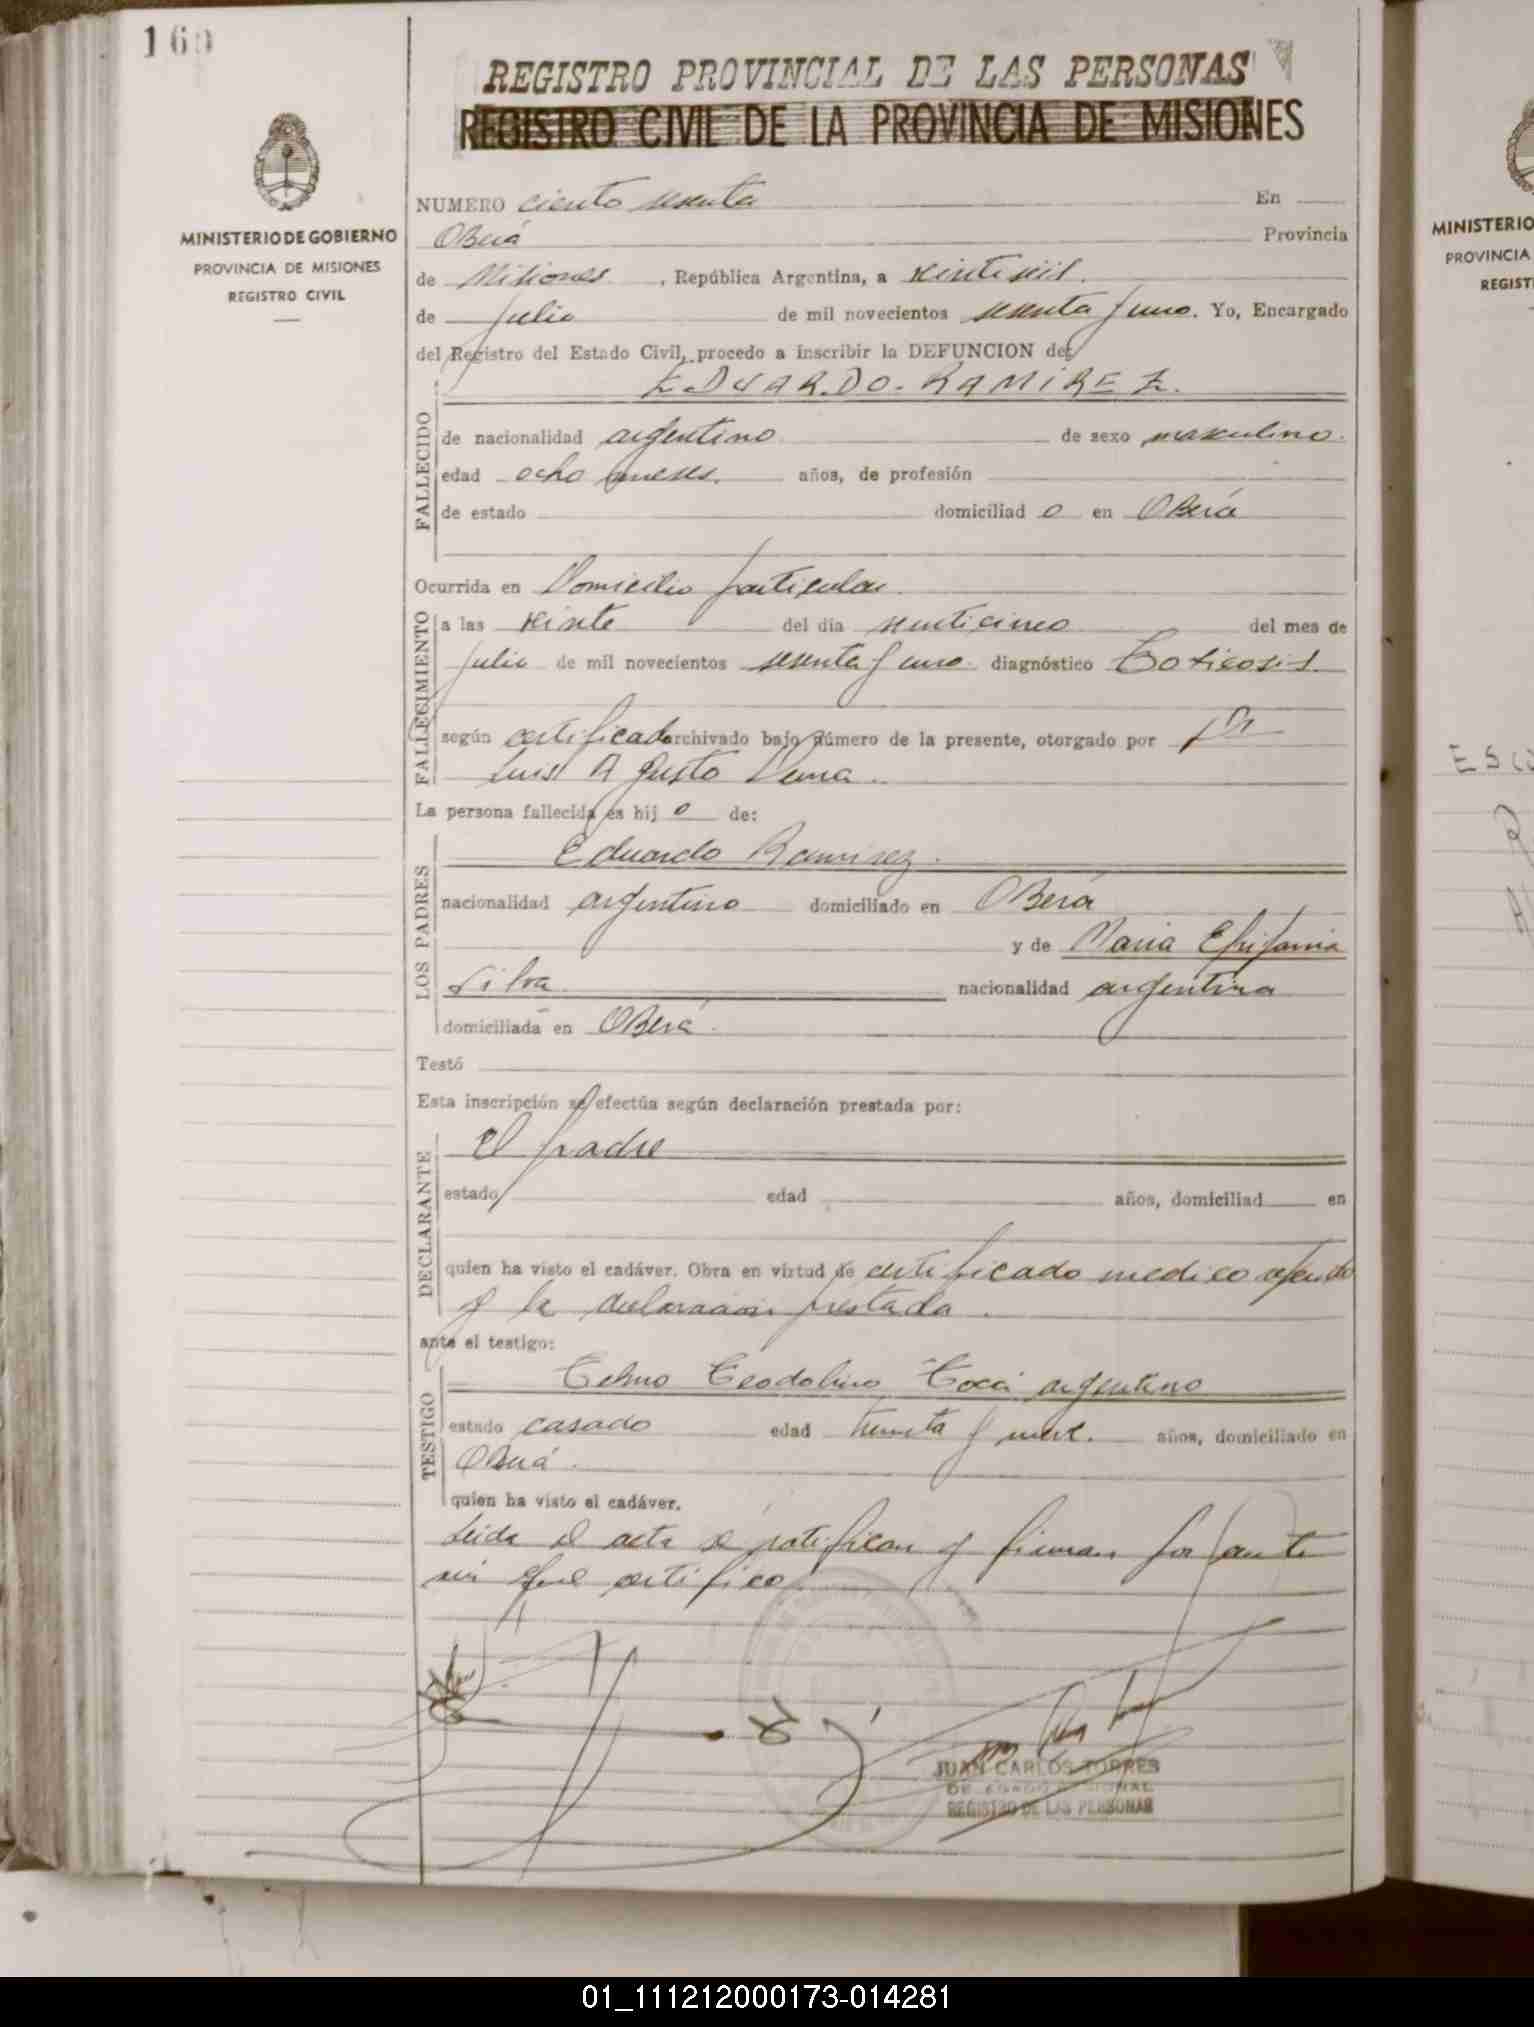 160
REGISTRO PROVINCIAL DE LAS PERSONAS
REGISTRO CIVIL DE LA PROVINCIA DE MISIONES
MINISTERIO DE GOBIERNO
PROVINCIA DE MISIONES
REGISTRO CIVIL
NUMERO ciento sesenta En
Oberá Provincia
de Misiones, República Argentina, a veintiseis
de julio de mil novecientos sesenta y uno. Yo, Encargado
del Registro del Estado Civil, procedo a inscribir la DEFUNCION de:
EDUARDO RAMIREZ.
FALLECIDO
de nacionalidad argentino de sexo masculino.
edad ocho meses. años, de profesión
de estado domiciliad o en Oberá
Ocurrida en Domicilio particular
FALLECIMIENTO
a las veinte del día veinticinco del mes de
julio de mil novecientos sesenta y uno diagnóstico Toxicosis
según certificado archivado bajo número de la presente, otorgado por Dr
Luis Agusto
La persona fallecida es hij o de:
LOS PADRES
Eduardo Ramirez.
nacionalidad argentino domiciliado en Oberá
y de Maria Epifania
Silva nacionalidad argentina
domiciliada en Oberá.
Testó
Esta inscripción se efectúa según declaración prestada por:
DECLARANTE
El padre
estado edad años, domiciliad en
quien ha visto el cadáver. Obra en virtud de certificado medico
y la declaracion prestada.
ante el testigo:
TESTIGO
Telmo Teodolino argentino
estado casado edad treinta y nueve. años, domiciliado en
Oberá.
quien ha visto el cadáver.
Leida el acta se ratifican y firman por ante
mi que certifico
JUAN CARLOS TORRES
REGISTRO DE LAS PERSONAS
MINISTERIO
PROVINCIA
REGIST
01_111212000173-014281